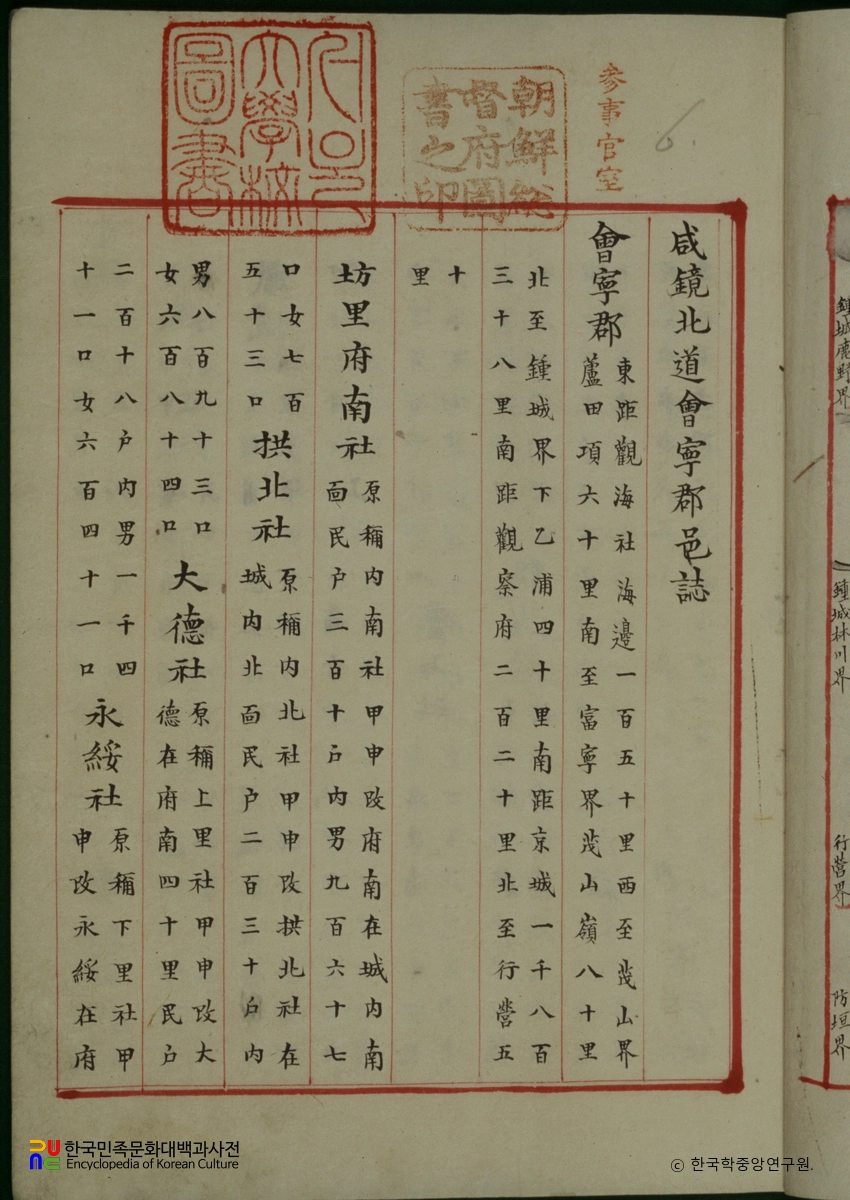 參事官室
6.
朝鮮總
督府圖
書之印
大學校
圖書
咸鏡北道會寧郡邑誌
會寧郡
東距觀海社海邊一百五十里西至茂山界
蘆田項六十里南至富寧界茂山嶺八十里
北至鍾城界下乙浦四十里南距京城一千八百
三十八里南距觀察府二百二十里北至行營五
十
里
坊里府南社
原稱內南社甲申改府南在城內南
面民户三百十户內男九百六十七
口女七百
五十三口
拱北社
原稱內北社甲申改拱北社在
城內北面民户二百三十户內
男八百九十三口
女六百八十四口
大德社
原稱上里社甲申改大
德在府南四十里民户
二百十八户內男一千四
十一口女六百四十一口
永綏社
原稱下里社甲
申改永綏在府
鍾城鹿野界
鍾城林川界
行營界
防垣界
한국민족문화대백과사전
Encyclopedia of Korean Culture
© 한국학중앙연구원.